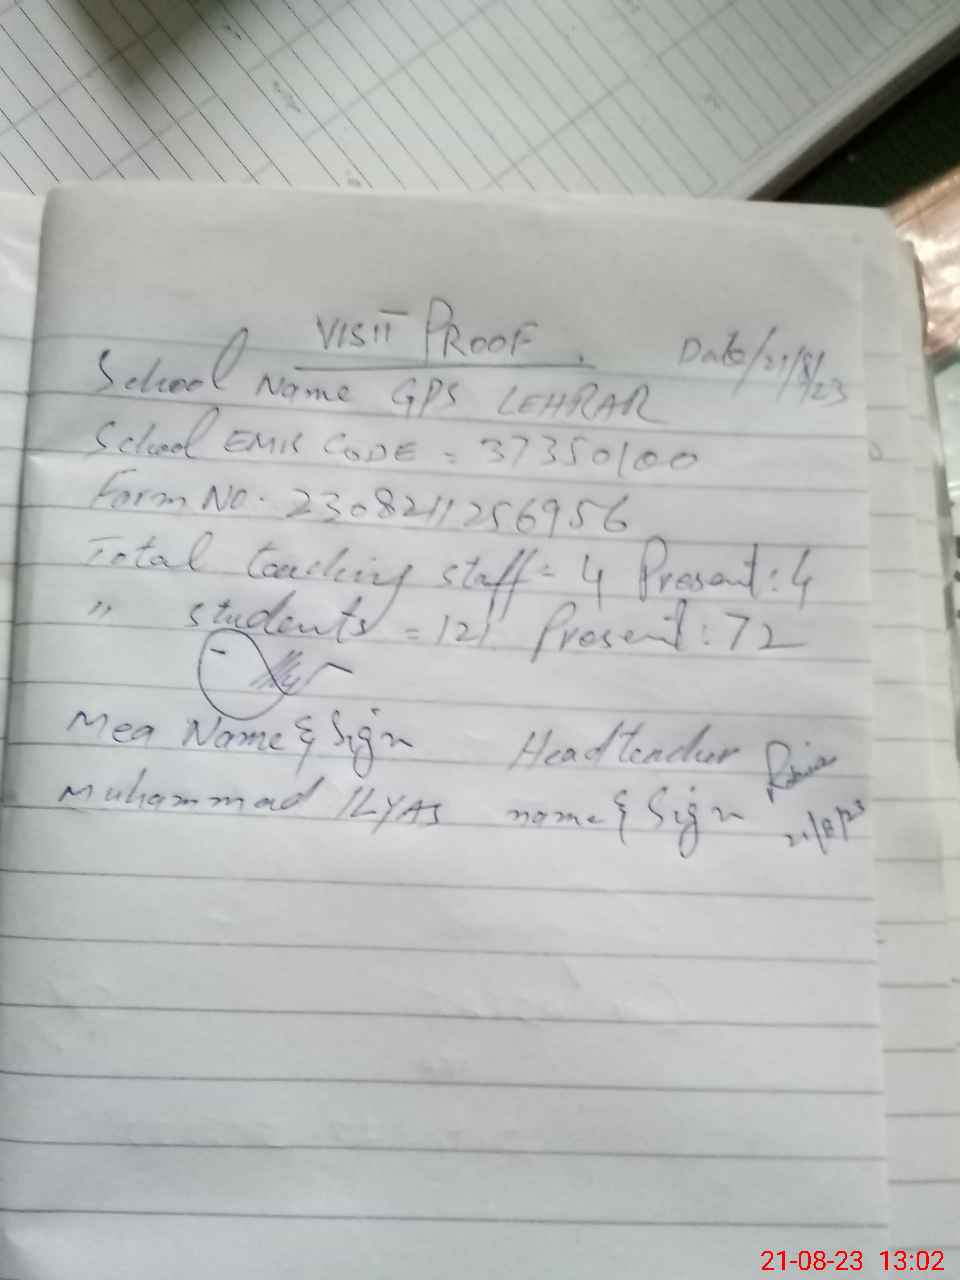 VISIT PROOF. Date/21/8/23
School Name GPS LEHRAR
School EMIS CODE = 37350100
Form NO. 2308211256956
Total teaching staff = 4 Present: 4
" students = 121. Present: 72
Mea Name & Sign Headteacher
Muhammad ILYAS name & Sign 21/8/23
21-08-23 13:02